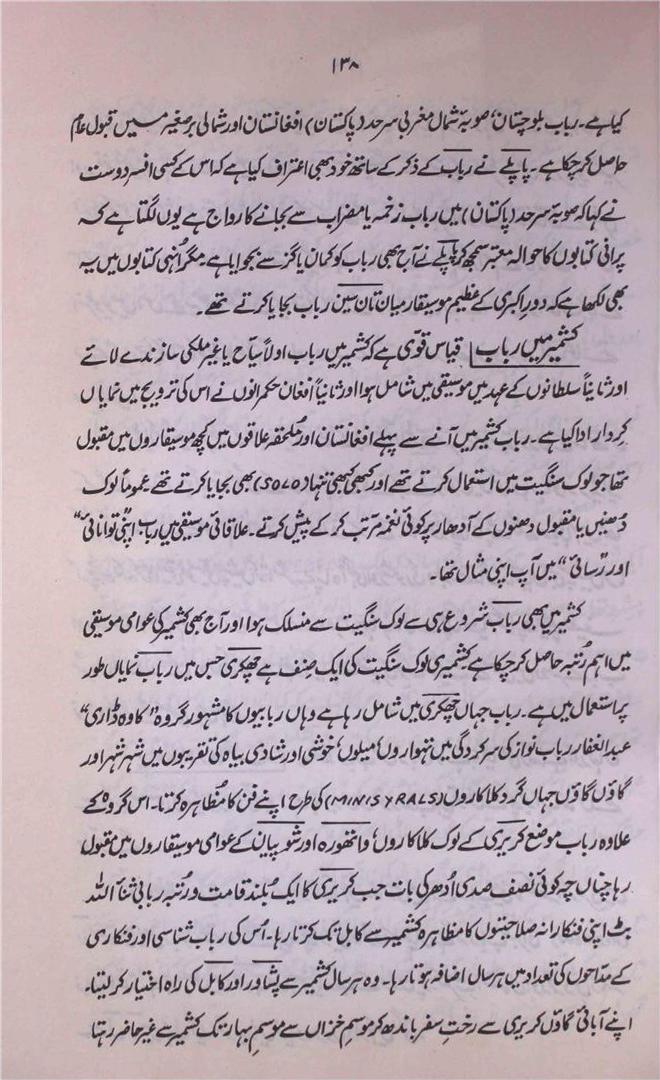 ۱۳۸
کیا ہے۔ رباب بلوچستان، صوبۂ شمال مغربی سرحد (پاکستان) افغانستان اور شمالی برصغیر میں قبول عام
حاصل کر چکا ہے۔ پاپلے نے رباب کے ذکر کے ساتھ خود بھی اعتراف کیا ہے کہ اس کے کسی افسر دوست
نے کہا کہ صوبۂ سرحد (پاکستان) میں رباب زخمہ یا مضراب سے بجانے کا رواج ہے یوں لگتا ہے کہ
پرانی کتابوں کا حوالہ معتبر سمجھ کر پاپلے نے آج بھی رباب کو کمان یا گز سے بجوایا ہے۔ مگر اُنہی کتابوں میں یہ
بھی لکھا ہے کہ دورِ اکبری کے عظیم موسیقار میان تان سین رباب بجایا کرتے تھے۔
کشمیر میں رباب قیاس قوی ہے کہ کشمیر میں رباب اولاً سیاح یا غیر ملکی سازندے لائے
اور ثانیاً سلطانوں کے عہد میں موسیقی میں شامل ہوا اور ثانیاً افغان حکمرانوں نے اس کی ترویج میں نمایاں
کردار ادا کیا ہے۔ رباب کشمیر میں آنے سے پہلے افغانستان اور ملحقہ علاقوں میں کچھ موسیقاروں میں مقبول
تھا جو لوک سنگیت میں استعمال کرتے تھے اور کبھی کبھی تنہا (SOLO) بھی بجایا کرتے تھے عموماً لوک
دُھنیں یا مقبول دھنوں کے آدھار پر کوئی نغمہ مرتب کر کے پیش کرتے۔ علاقائی موسیقی میں رباب اپنی "توانائی"
اور "رسائی" میں آپ اپنی مثال تھا۔
کشمیر میں بھی رباب شروع ہی سے لوک سنگیت سے منسلک ہوا اور آج بھی کشمیر کی عوامی موسیقی
میں اہم رُتبہ حاصل کر چکا ہے کشمیری لوک سنگیت کی ایک صنف ہے چھکری جس میں رباب نمایاں طور
پر استعمال میں ہے۔ رباب جہاں چھکری میں شامل رہا ہے وہاں ربابیوں کا مشہور گروہ "کاوہ ڈاری"
عبدالغفار رباب نواز کی سرکردگی میں تہواروں، میلوں، خوشی اور شادی بیاہ کی تقریبوں میں شہر شہر اور
گاؤں گاؤں جہاں گرد کلاکاروں (MINISTRALS) کی طرح اپنے فن کا مُظاہرہ کرتا۔ اس گروہ کے
علاوہ رباب موضع کریری کے لوک کلاکاروں، واتھورہ اور شوپیان کے عوامی موسیقاروں میں مقبول
رہا چناں چہ کوئی نصف صدی اُدھر کی بات جب کریری کا ایک بُلند قامت و رُتبہ ربابی ثناء اللہ
بٹ اپنی فنکارانہ صلاحیتوں کا مظاہرہ کشمیر سے کابل تک کرتا رہا۔ اُس کی رباب شناسی اور فنکاری
کے مدّاحوں کی تعداد میں ہر سال اضافہ ہوتا رہا۔ وہ ہر سال کشمیر سے پشاور اور کابل کی راہ اختیار کر لیتا۔
اپنے آبائی گاؤں کریری سے رختِ سفر باندھ کر موسمِ خزاں سے موسمِ بہار تک کشمیر سے غیر حاضر رہتا